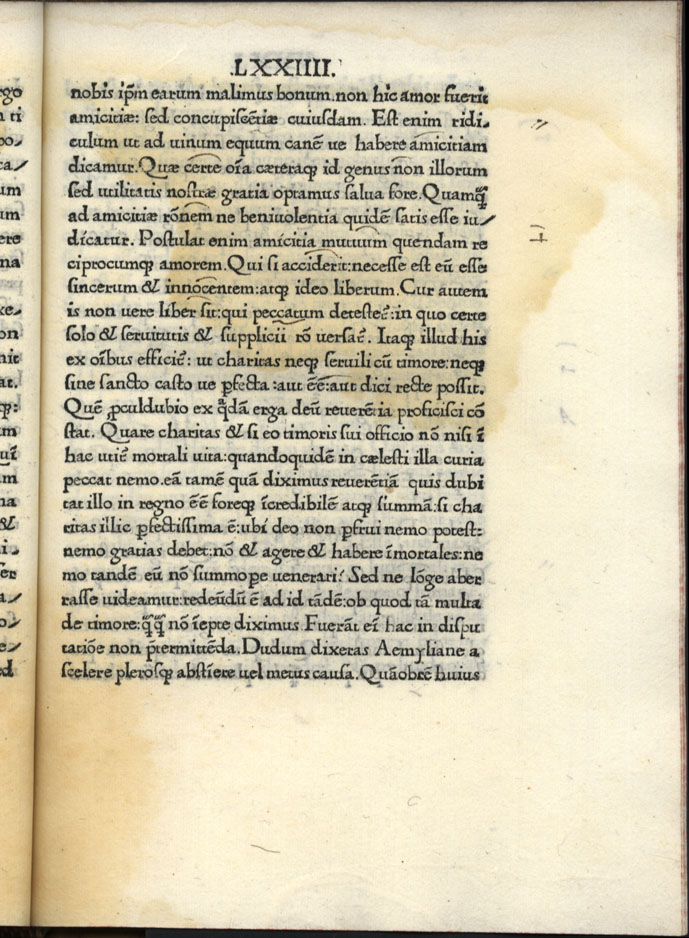 .LXXIIII.
nobis ip̃m earum malimus bonum.non hic amor fuerit
amicitiæ: sed concupiscẽtiæ cuiusdam. Est enim ridi⸗
culum ut ad uinum equum canẽ ue habere amicitiam
dicamur. Quæ certe oĩa cæteraq; id genus non illorum
sed utilitatis nostræ gratia optamus salua fore. Quamq̃q̃
ad amicitiæ rõnem ne beniuolentia quidẽ satis esse iu⸗
dicatur. Postulat enim amicitia mutuum quendam re
ciprocumq; amorem. Qui si acciderit:necesse est eũ esse
sincerum & innocentem:atq; ideo liberum. Cur autem
is non uere liber sit:qui peccatum detestet᷑:in quo certe
solo & seruitutis & supplicii rõ uersat᷑. Itaq; illud his
ex oĩbus efficit᷑: ut charitas neq; seruili cũ timore:neq;
sine sancto casto ue ꝑfecta :aut ẽẽ:aut dici recte possit.
Quẽ ꝓculdubio ex q̃dã erga deũ reuerẽtia proficisci cõ
stat. Quare charitas & si eo timoris sui officio nõ nisi ĩ
hac utit᷑ mortali uita:quandoquidẽ in cælesti illa curia
peccat nemo.eã tamẽ quã diximus reuerẽtiã quis dubi
tat illo in regno ẽẽ foreq; ĩcredibilẽ atq; summã:si cha
ritas illic ꝑfectissima ẽ:ubi deo non ꝑfrui nemo potest:
nemo gratias debet:nõ & agere & habere ĩmortales:ne
mo tandẽ eũ nõ summo pe uenerari? Sed ne lõge aber
rasse uideamur:redeũdũ ẽ ad id tãdẽ:ob quod tã multa
de timore:q̃q̃ nõ ĩepte diximus. Fuerãt eĩ hac in dispu
tatiõe non p̃termittẽda. Dudum dixeras Aemyliane a
scelere plerosq; abstĩere uel metus causa. Quãobrẽ huius